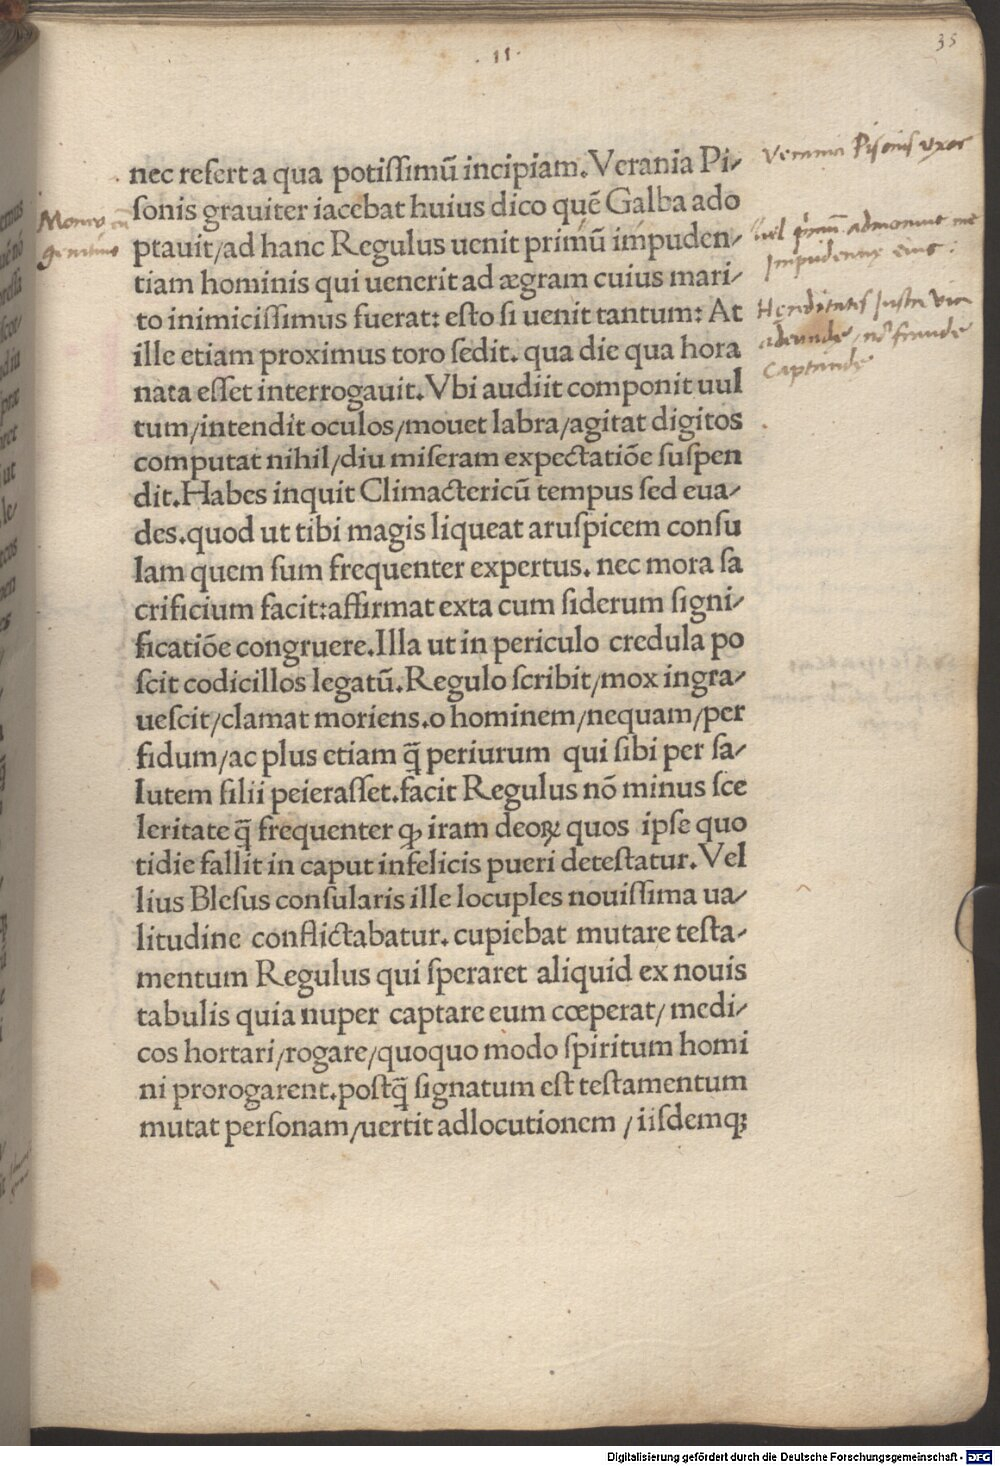 35
. 11 .
nec refert a qua potiſſimū incipiam. Verania Pi⸗
ſonis grauiter iacebat huius dico quē Galba ado
ptauit/ad hanc Regulus uenit primū impuden⸗
tiam hominis qui uenerit ad ægram cuius mari⸗
to inimiciſſimus fuerat: eſto ſi uenit tantum: At
ille etiam proximus toro ſedit. qua die qua hora
nata eſſet interrogauit. Vbi audiit componit uul
tum/intendit oculos/mouet labra/agitat digitos
computat nihil/diu miſeram expectatiõe ſuſpen
dit. Habes inquit Climactericū tempus ſed eua⸗
des. quod ut tibi magis liqueat aruſpicem conſu
lam quem ſum frequenter expertus. nec mora ſa
crificium facit: affirmat exta cum ſiderum ſigni⸗
ficatiõe congruere. Illa ut in periculo credula po
ſcit codicillos legatū. Regulo ſcribit/mox ingra⸗
ueſcit/clamat moriens. o hominem/nequam/per
fidum/ac plus etiam q̄ periurum qui ſibi per ſa⸗
lutem filii peieraſſet. facit Regulus nõ minus ſce
leritate q̄ frequenter ꝙ iram deoꝝ quos ipſe quo
tidie fallit in caput infelicis pueri deteſtatur. Vel
lius Bleſus conſularis ille locuples nouiſſima ua⸗
litudine conflictabatur. cupiebat mutare teſta⸗
mentum Regulus qui ſperaret aliquid ex nouis
tabulis quia nuper captare eum cœperat/ medi⸗
cos hortari/rogare/quoquo modo ſpiritum homi
ni prorogarent. poſtq̄ ſignatum eſt teſtamentum
mutat perſonam/uertit adlocutionem / iiſdemqꝫ
Verania Pisonis uxor
uel admonuit me
impudentię eius :
Hęreditates iusta via
adeundę, nõ fraude
captandę
genitiuo
Digitalisierung gefördert durch die Deutsche Forschungsgemeinschaft - DFG